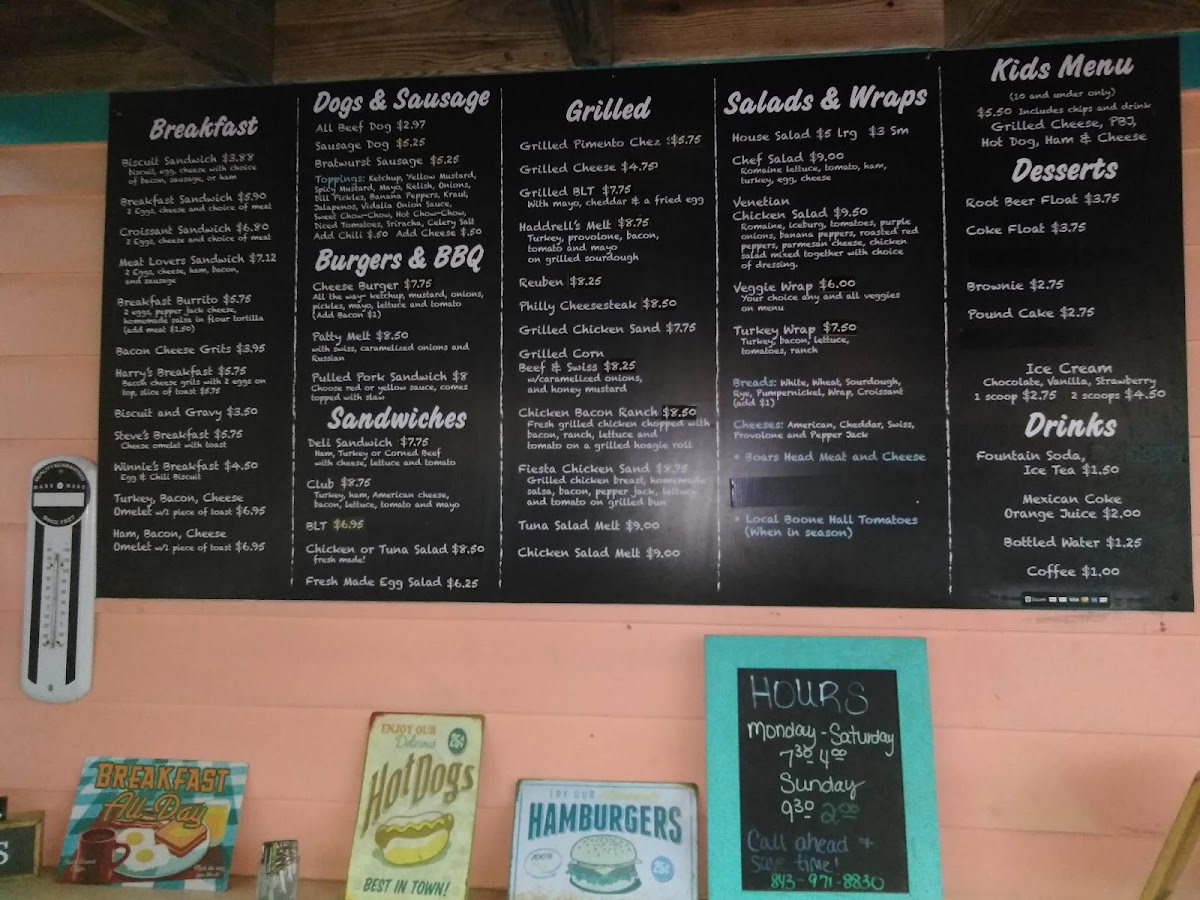 Breakfast
Biscuit Sandwich $3.88
biscuit, egg, cheese with choice
of bacon, sausage, or ham
Breakfast Sandwich $5.90
2 Eggs, cheese and choice of meat
Croissant Sandwich $6.80
2 Eggs, cheese and choice of meat
Meat Lovers Sandwich $7.12
2 Eggs, cheese, ham, bacon,
and sausage
Breakfast Burrito $5.75
2 eggs, pepper jack cheese,
homemade salsa in flour tortilla
(add meat $1.50)
Bacon Cheese Grits $3.95
Harry's Breakfast $5.75
Bacon cheese grits with 2 eggs on
top, slice of toast $5.75
Biscuit and Gravy $3.50
Steve's Breakfast $5.75
Cheese omelet with toast
Winnie's Breakfast $4.50
Egg & Chili Biscuit
Turkey, Bacon, Cheese
Omelet w/1 piece of toast $6.95
Ham, Bacon, Cheese
Omelet w/1 piece of toast $6.95
Dogs & Sausage
All Beef Dog $2.97
Sausage Dog $5.25
Bratwurst Sausage $5.25
Toppings: Ketchup, Yellow Mustard,
Spicy Mustard, Mayo, Relish, Onions,
Dill Pickles, Banana Peppers, Kraut,
Jalapenos, Vidalia Onion Sauce,
Sweet Chow-Chow, Hot Chow-Chow,
Diced Tomatoes, Sriracha, Celery Salt
Add Chili $.50 Add Cheese $.50
Burgers & BBQ
Cheese Burger $7.75
All the way- ketchup, mustard, onions,
pickles, mayo, lettuce and tomato
(Add Bacon $1)
Patty Melt $8.50
with swiss, caramelized onions and
Russian
Pulled Pork Sandwich $8
Choose red or yellow sauce, comes
topped with slaw
Sandwiches
Deli Sandwich $7.75
Ham, Turkey or Corned Beef
with cheese, lettuce and tomato
Club $8.75
Turkey, ham, American cheese,
bacon, lettuce, tomato and mayo
BLT $6.95
Chicken or Tuna Salad $8.50
fresh made!
Fresh Made Egg Salad $6.25
Grilled
Grilled Pimento Chez $5.75
Grilled Cheese $4.75
Grilled BLT $7.75
With mayo, cheddar & a fried egg
Haddrell's Melt $8.75
Turkey, provolone, bacon,
tomato and mayo
on grilled sourdough
Reuben $8.25
Philly Cheesesteak $8.50
Grilled Chicken Sand $7.75
Grilled Corn
Beef & Swiss $8.25
w/caramelized onions,
and honey mustard
Chicken Bacon Ranch $8.50
Fresh grilled chicken chopped with
bacon, ranch, lettuce and
tomato on a grilled hoagie roll
Fiesta Chicken Sand $8.75
Grilled chicken breast, homemade
salsa, bacon, pepper jack, lettuce
and tomato on grilled bun
Tuna Salad Melt $9.00
Chicken Salad Melt $9.00
Salads & Wraps
House Salad $5 lrg $3 Sm
Chef Salad $9.00
Romaine lettuce, tomato, ham,
turkey, egg, cheese
Venetian
Chicken Salad $9.50
Romaine, iceburg, tomatoes, purple
onions, banana peppers, roasted red
peppers, parmesan cheese, chicken
salad mixed together with choice
of dressing.
Veggie Wrap $6.00
Your choice any and all veggies
on menu
Turkey Wrap $7.50
Turkey, bacon, lettuce,
tomatoes, ranch
Breads: White, Wheat, Sourdough,
Rye, Pumpernickel, Wrap, Croissant
(add $1)
Cheeses: American, Cheddar, Swiss,
Provolone and Pepper Jack
* Boars Head Meat and Cheese
* Local Boone Hall Tomatoes
(When in season)
Kids Menu
(10 and under only)
$5.50 Includes chips and drink
Grilled Cheese, PBJ,
Hot Dog, Ham & Cheese
Desserts
Root Beer Float $3.75
Coke Float $3.75
Brownie $2.75
Pound Cake $2.75
Ice Cream
Chocolate, Vanilla, Strawberry
1 scoop $2.75 2 scoops $4.50
Drinks
Fountain Soda,
Ice Tea $1.50
Mexican Coke
Orange Juice $2.00
Bottled Water $1.25
Coffee $1.00
BREAKFAST
All-Day
ENJOY OUR
Delicious
25¢
HOTDOGS
BEST IN TOWN!
TRY OUR
HAMBURGERS
100%
25¢
HOURS
Monday-Saturday
7:30 4:00
Sunday
9:30 2:00
Call ahead +
save time!
843-971-8830